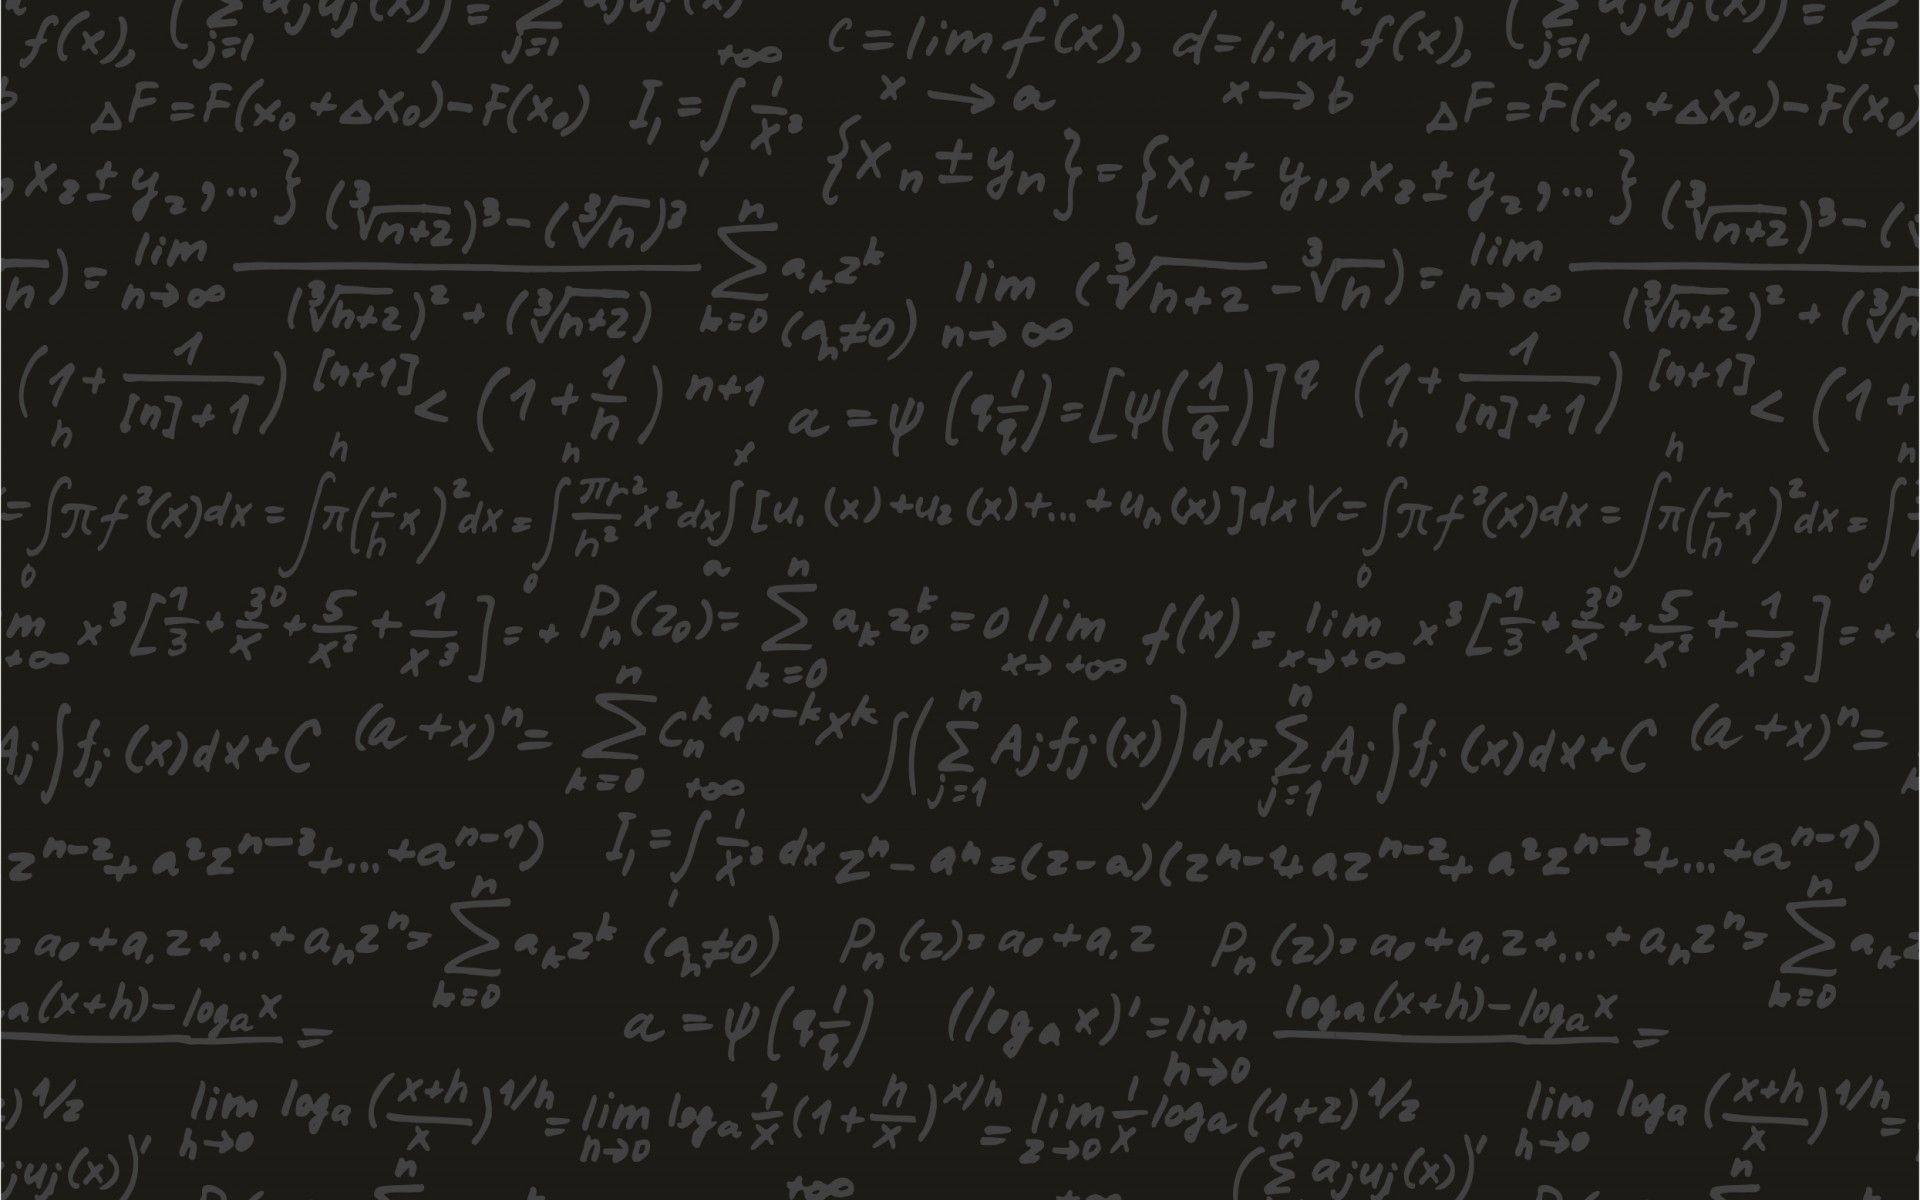 f(x), (∑_{j=1} a_j u_j(x)) = ∑_{j=1} a_j u_j(x) c = lim_{x→a} f(x), d = lim_{x→b} f(x), (∑_{j=1} a_j u_j(x)) = ∑_{j=1}
b ΔF = F(x₀ + Δx₀) − F(x₀) I₁ = ∫_1^{+∞} 1/x² ΔF = F(x₀ + Δx₀) − F(x₀)
, x₂ ± y₂, ... } {x_n ± y_n} = {x₁ ± y₁, x₂ ± y₂, ... }
n) = lim_{n→∞} ((∛(n+2))³ − (∛n)³) / ((∛(n+2))² + (∛(n+2)) ∑_{k=0}^{n} a_k z^k (a_n ≠ 0) lim_{n→∞} (∛(n+2) − ∛n) = lim_{n→∞} (∛(n+2))³ − ( / (∛(n+2))² + (∛n
(1 + 1/([n]+1))^{[n+1]} < (1 + 1/n)^{n+1} a = ψ(q 1/q) = [ψ(1/q)]^q (1 + 1/([n]+1))^{[n+1]} < (1 +
= ∫_0^h π f²(x)dx = ∫^h π(r/h x)² dx = ∫_0^h πr²/h² x² dx ∫_a^x [u₁(x) + u₂(x) + ... + u_n(x)]dx V = ∫_0^h π f²(x)dx = ∫^h π(r/h x)² dx = ∫_0^h
m_{+∞} x³[1/3 + 3⁰/x + 5/x² + 1/x³] = + P_n(z₀) = ∑_{k=0}^{n} a_k z₀^k = 0 lim_{x→+∞} f(x) = lim_{x→+∞} x³[1/3 + 3⁰/x + 5/x² + 1/x³] = +
A_j ∫ f_j(x)dx + C (a + x)^n = ∑_{k=0}^{n} C_n^k a^{n−k} x^k ∫(∑_{j=1}^{n} A_j f_j(x))dx = ∑_{j=1}^{n} A_j ∫ f_j(x)dx + C (a + x)^n =
z^{n−2} + a² z^{n−3} + ... + a^{n−1}) I₁ = ∫_1^{+∞} 1/x² dx z^n − a^n = (z − a)(z^{n−1} + a z^{n−2} + a² z^{n−3} + ... + a^{n−1})
= a₀ + a₁z + ... + a_n z^n = ∑_{k=0}^{n} a_k z^k (a_n ≠ 0) P_n(z) = a₀ + a₁z P_n(z) = a₀ + a₁z + ... + a_n z^n = ∑_{k=0}^{n} a_k z
a(x+h) − log_a x = a = ψ(q 1/q) (log_a x)' = lim_{h→0} log_a(x+h) − log_a x =
)^{1/2} lim_{h→0} log_a((x+h)/x)^{1/h} = lim_{h→0} log_a 1/x (1 + h/x)^{x/h} = lim_{z→0} 1/x log_a(1+z)^{1/2} lim_{h→0} log_a((x+h)/x)^{1/h} =
_j u_j(x))' n +∞ (∑^n a_j u_j(x))' n